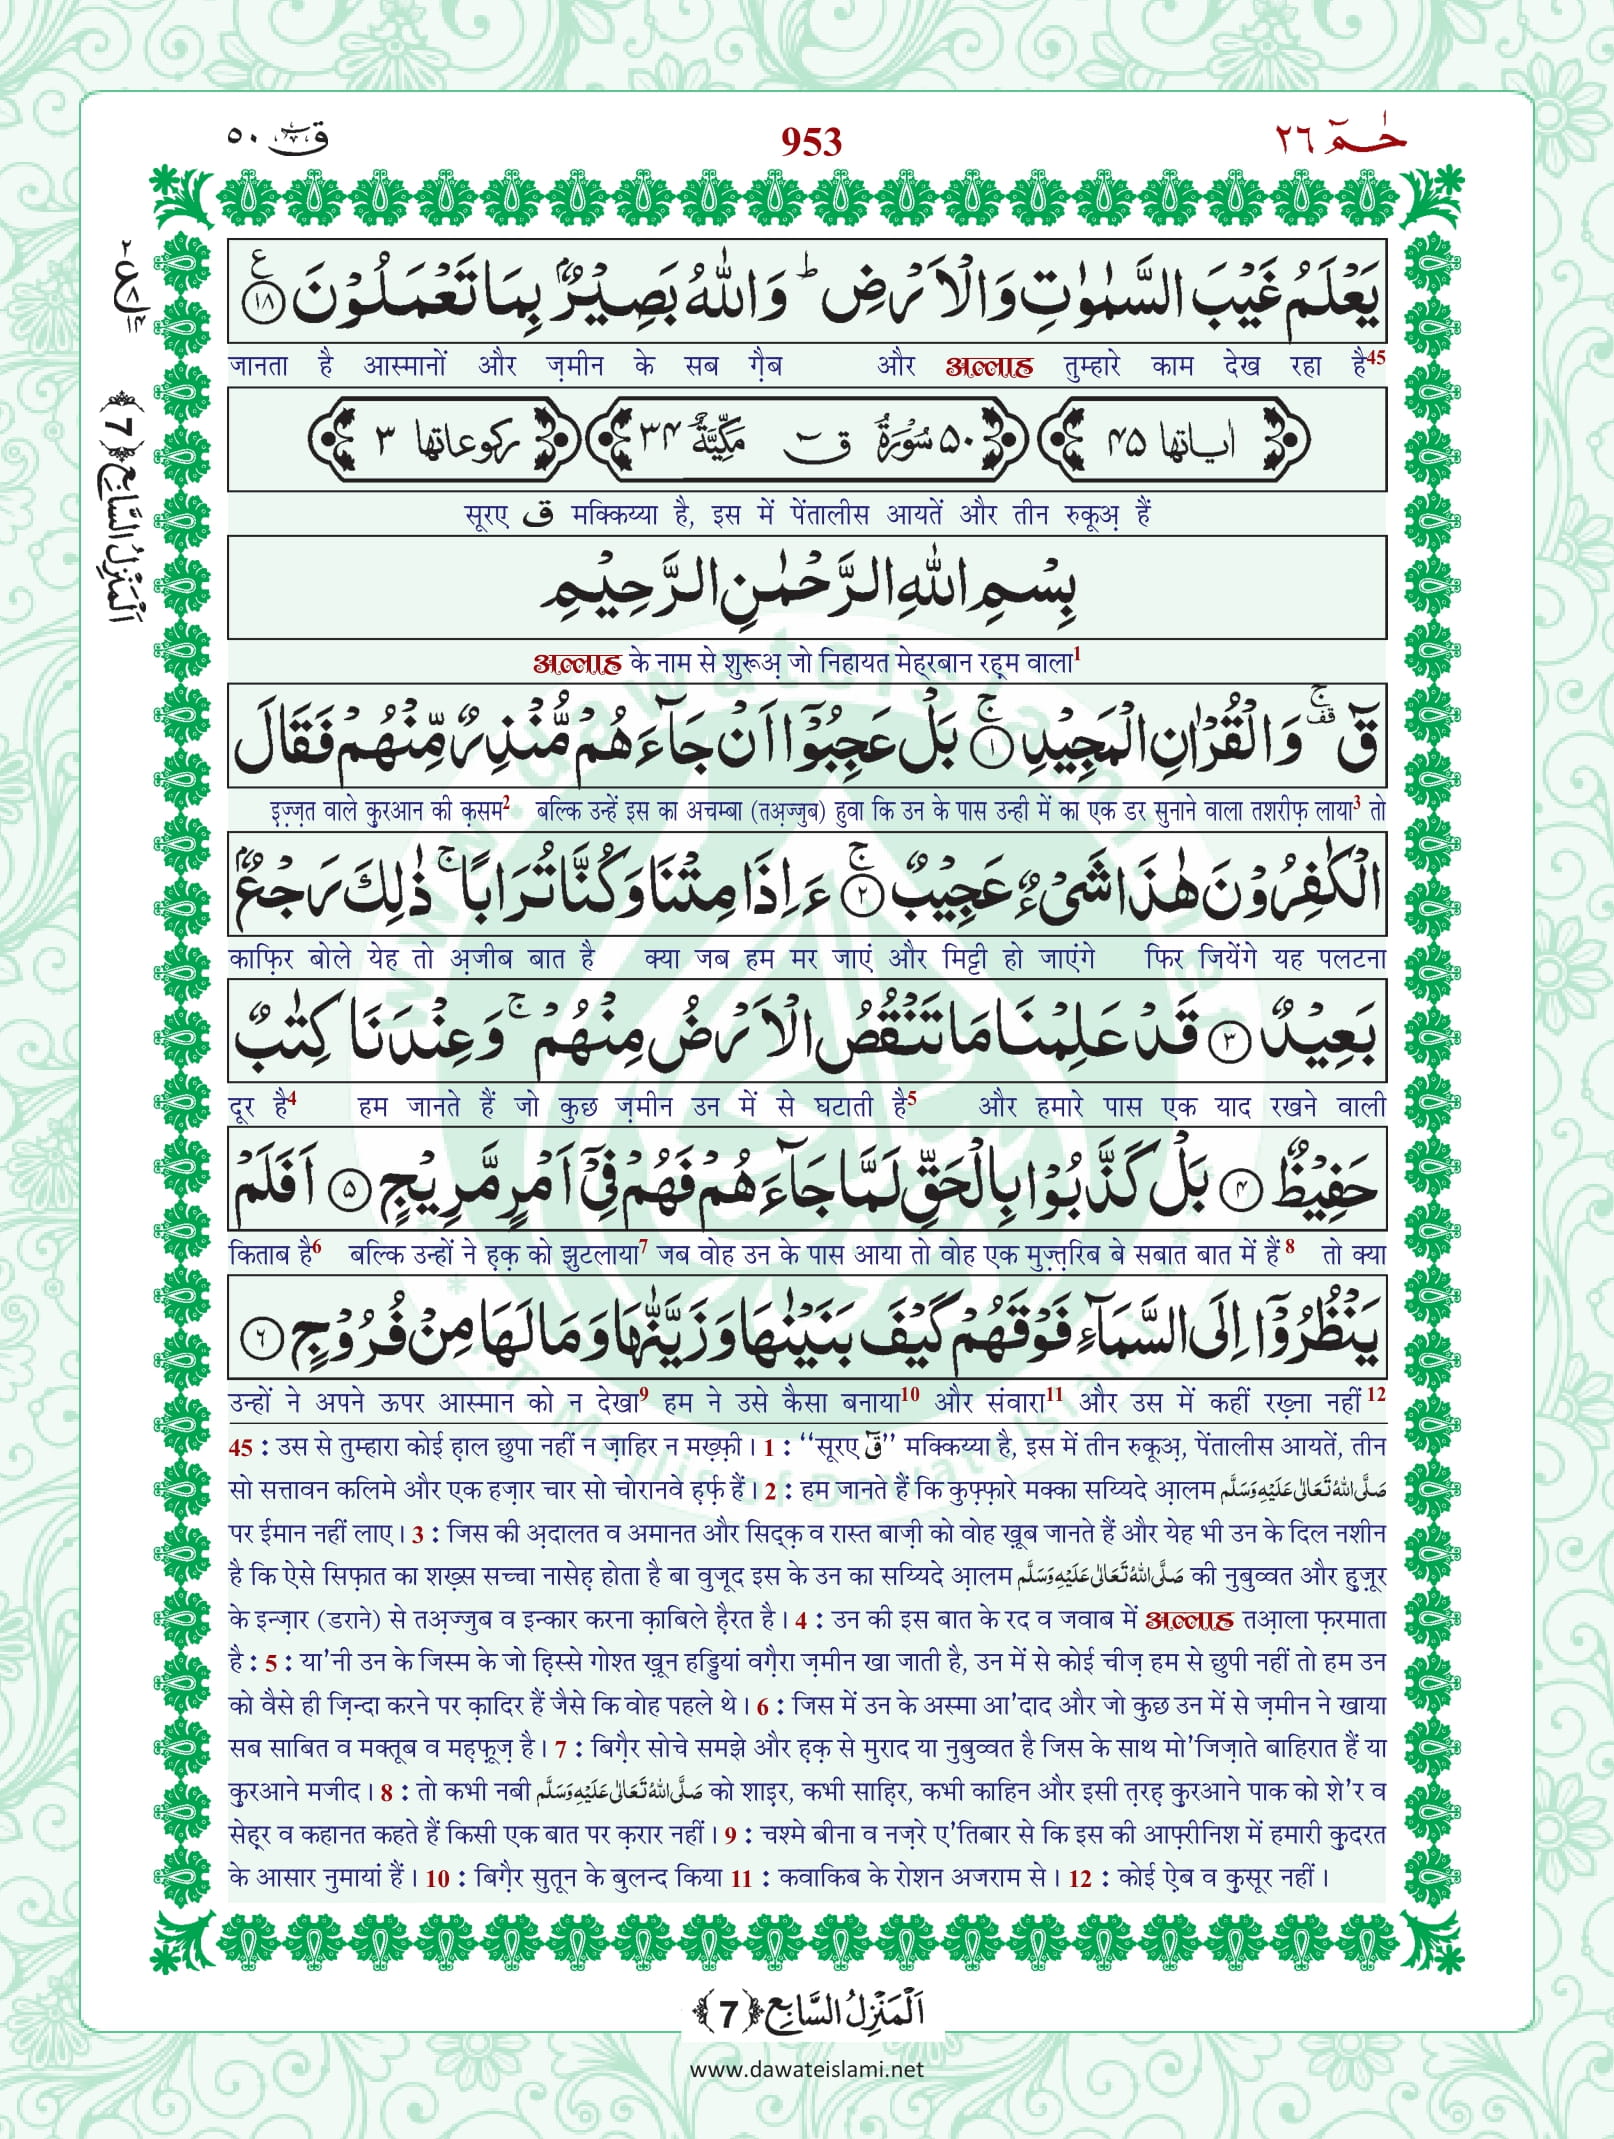 حٰمٓ ٢٦
953
قٓ ٥٠
يَعْلَمُ غَيْبَ السَّمٰوٰتِ وَالْاَرْضِ ؕ وَاللّٰهُ بَصِيْرٌۢ بِمَا تَعْمَلُوْنَ ﴿١٨﴾ ع
जानता है आस्मानों और ज़मीन के सब ग़ैब और अल्लाह तुम्हारे काम देख रहा है45
اٰياتها ٤٥ ٥٠ سُوْرَةُ قٓ مَكِّيَّةٌ ٣٤ ركوعاتها ٣
सूरए ق मक्किय्या है, इस में पेंतालीस आयतें और तीन रुकूअ़ हैं
بِسْمِ اللّٰهِ الرَّحْمٰنِ الرَّحِيْمِ
अल्लाह के नाम से शुरूअ़ जो निहायत मेह्‌रबान रह़्‌म वाला1
قٓ ۚ۫ وَالْقُرْاٰنِ الْمَجِيْدِ ۚ﴿١﴾ بَلْ عَجِبُوْۤا اَنْ جَآءَهُمْ مُّنْذِرٌ مِّنْهُمْ فَقَالَ
इ़ज़्ज़त वाले क़ुरआन की क़सम2 बल्कि उन्हें इस का अचम्बा (तअ़ज्जुब) हुवा कि उन के पास उन्ही में का एक डर सुनाने वाला तशरीफ़ लाया3 तो
الْكٰفِرُوْنَ هٰذَا شَیْءٌ عَجِيْبٌ ۚ﴿٢﴾ ءَاِذَا مِتْنَا وَكُنَّا تُرَابًا ۚ ذٰلِكَ رَجْعٌۢ
काफ़िर बोले येह तो अ़जीब बात है क्या जब हम मर जाएं और मिट्टी हो जाएंगे फिर जियेंगे यह पलटना
بَعِيْدٌ ﴿٣﴾ قَدْ عَلِمْنَا مَا تَنْقُصُ الْاَرْضُ مِنْهُمْ ۚ وَعِنْدَنَا كِتٰبٌ
दूर है4 हम जानते हैं जो कुछ ज़मीन उन में से घटाती है5 और हमारे पास एक याद रखने वाली
حَفِيْظٌ ﴿٤﴾ بَلْ كَذَّبُوْا بِالْحَقِّ لَمَّا جَآءَهُمْ فَهُمْ فِيْۤ اَمْرٍ مَّرِيْجٍ ﴿٥﴾ اَفَلَمْ
किताब है6 बल्कि उन्हों ने ह़क़ को झुटलाया7 जब वोह उन के पास आया तो वोह एक मुज़्त़रिब बे सबात बात में हैं8 तो क्या
يَنْظُرُوْۤا اِلَى السَّمَآءِ فَوْقَهُمْ كَيْفَ بَنَيْنٰهَا وَزَيَّنّٰهَا وَمَا لَهَا مِنْ فُرُوْجٍ ﴿٦﴾
उन्हों ने अपने ऊपर आस्मान को न देखा9 हम ने उसे कैसा बनाया10 और संवारा11 और उस में कहीं रख़्ना नहीं12
45 : उस से तुम्हारा कोई ह़ाल छुपा नहीं न ज़ाहिर न मख़्फ़ी। 1 : ‘‘सूरए قٓ’’ मक्किय्या है, इस में तीन रुकूअ़, पेंतालीस आयतें, तीन
सो सत्तावन कलिमे और एक हज़ार चार सो चोरानवे ह़र्फ़ हैं। 2 : हम जानते हैं कि कुफ़्फ़ारे मक्का सय्यिदे आ़लम صَلَّى اللّٰهُ تَعَالٰى عَلَيْهِ وَسَلَّم
पर ईमान नहीं लाए। 3 : जिस की अ़दालत व अमानत और सिद्क़ व रास्त बाज़ी को वोह ख़ूब जानते हैं और येह भी उन के दिल नशीन
है कि ऐसे सिफ़ात का शख़्स सच्चा नासेह़ होता है बा वुजूद इस के उन का सय्यिदे आ़लम صَلَّى اللّٰهُ تَعَالٰى عَلَيْهِ وَسَلَّم की नुबुव्वत और हुज़ूर
के इन्ज़ार (डराने) से तअ़ज्जुब व इन्कार करना क़ाबिले ह़ैरत है। 4 : उन की इस बात के रद व जवाब में अल्लाह तआ़ला फ़रमाता
है : 5 : या’नी उन के जिस्म के जो ह़िस्से गोश्त ख़ून हड्डियां वग़ैरा ज़मीन खा जाती है, उन में से कोई चीज़ हम से छुपी नहीं तो हम उन
को वैसे ही ज़िन्दा करने पर क़ादिर हैं जैसे कि वोह पहले थे। 6 : जिस में उन के अस्मा आ’दाद और जो कुछ उन में से ज़मीन ने खाया
सब साबित व मक्तूब व मह़्फ़ूज़ है। 7 : बिग़ैर सोचे समझे और ह़क़ से मुराद या नुबुव्वत है जिस के साथ मो’जिज़ाते बाहिरात हैं या
क़ुरआने मजीद। 8 : तो कभी नबी صَلَّى اللّٰهُ تَعَالٰى عَلَيْهِ وَسَلَّم को शाइ़र, कभी साह़िर, कभी काहिन और इसी त़रह़ क़ुरआने पाक को शे’र व
सेह़्‌र व कहानत कहते हैं किसी एक बात पर क़रार नहीं। 9 : चश्मे बीना व नज़रे ए’तिबार से कि इस की आफ़्रीनिश में हमारी क़ुदरत
के आसार नुमायां हैं। 10 : बिग़ैर सुतून के बुलन्द किया 11 : कवाकिब के रोशन अजराम से। 12 : कोई ऐ़ब व क़ुसूर नहीं।
٢ ع ٨ ١٤
اَلْمَنْزِلُ السَّابِع ﴿7﴾
اَلْمَنْزِلُ السَّابِع ﴿7﴾
www.dawateislami.net